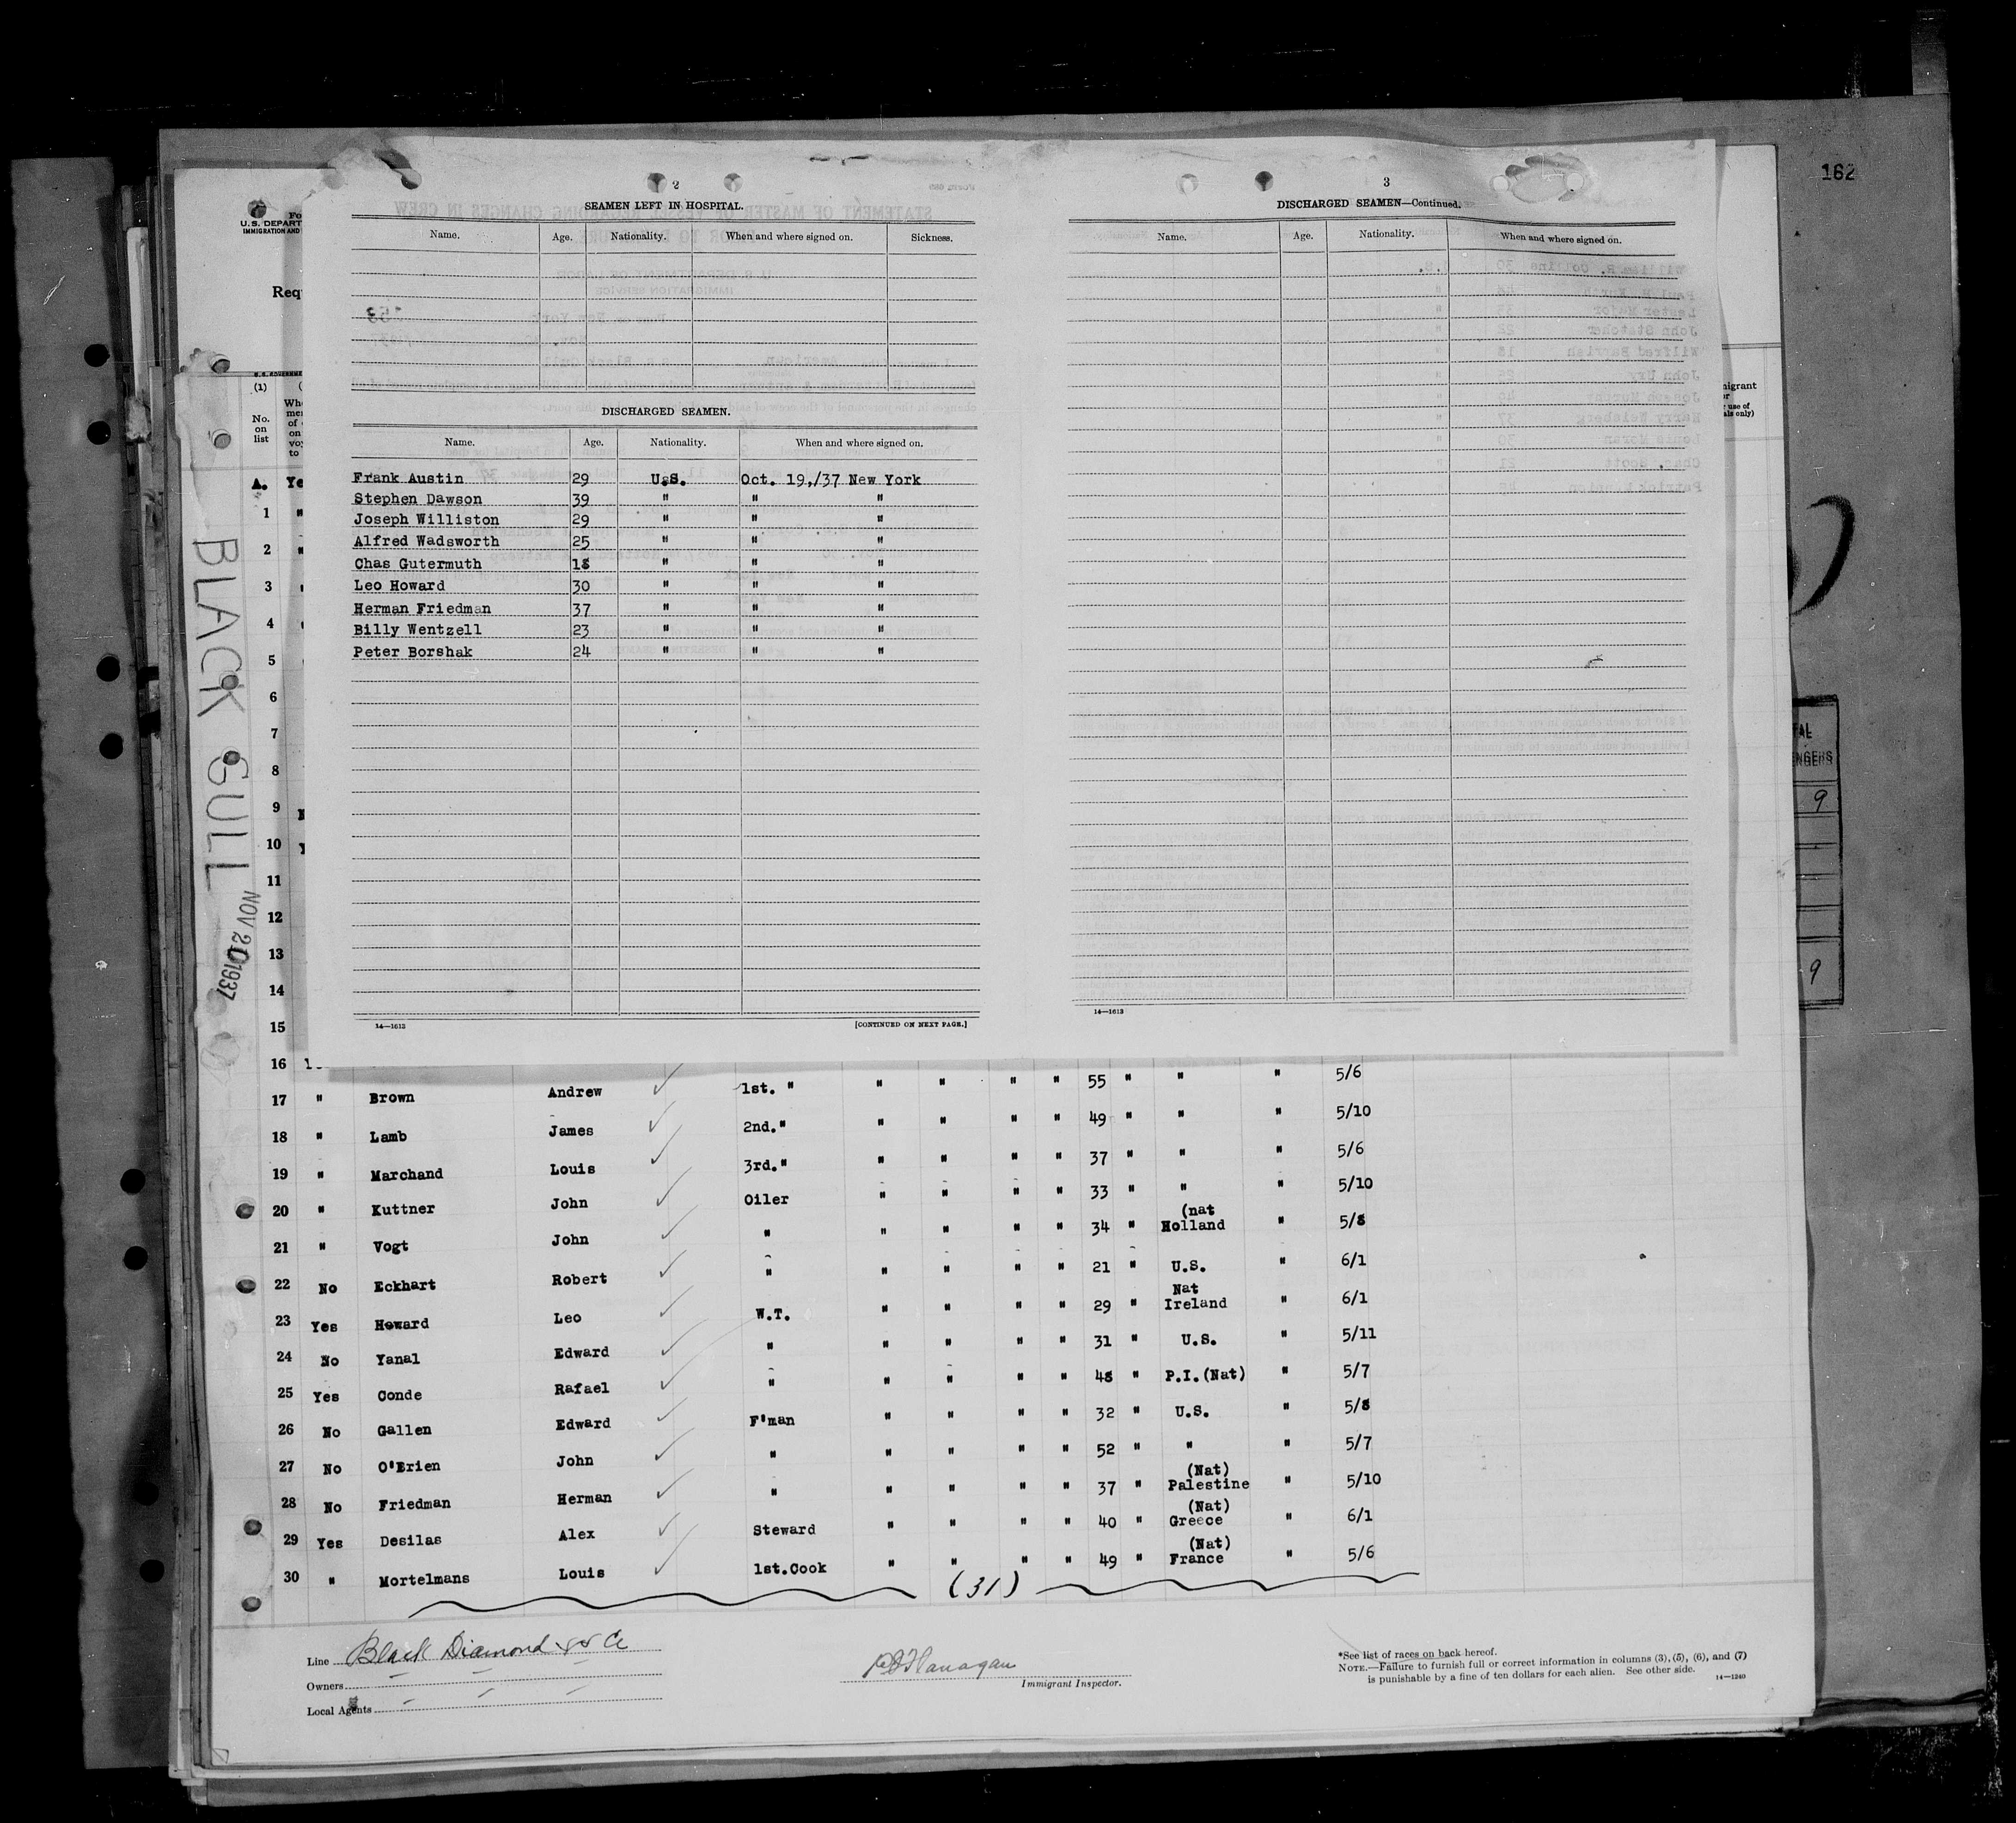 162
2
SEAMEN LEFT IN HOSPITAL.
Name. Age. Nationality. When and where signed on. Sickness.
DISCHARGED SEAMEN.
Name. Age. Nationality. When and where signed on.
Frank Austin 29 U.S. Oct. 19,/37 New York
Stephen Dawson 39 " " "
Joseph Williston 29 " " "
Alfred Wadsworth 25 " " "
Chas Gutermuth 18 " " "
Leo Howard 30 " " "
Herman Friedman 37 " " "
Billy Wentzell 23 " " "
Peter Borshak 24 " " "
14—1613 [CONTINUED ON NEXT PAGE.]
3
DISCHARGED SEAMEN—Continued.
Name. Age. Nationality. When and where signed on.
14—1613
U. S. DEPART
IMMIGRATION AND
Req
(1)
No. on list
A. Ye
1 "
2 "
3
4
5
6
7
8
9
10
11
12
13
14
15
16
BLACK GULL
NOV 20 1937
NGERS
9
9
17 " Brown Andrew 1st. " " " " " 55 " " " 5/6
18 " Lamb James 2nd." " " " " 49 " " " 5/10
19 " Marchand Louis 3rd." " " " " 37 " " " 5/6
20 " Kuttner John Oiler " " " " 33 " " " 5/10
21 " Vogt John " " " " " 34 " (nat Holland " 5/8
22 No Eckhart Robert " " " " " 21 " U.S. " 6/1
23 Yes Howard Leo W.T. " " " " 29 " Nat Ireland " 6/1
24 No Yanal Edward " " " " " 31 " U.S. " 5/11
25 Yes Conde Rafael " " " " " 48 " P.I.(Nat) " 5/7
26 No Gallen Edward F'man " " " " 32 " U.S. " 5/8
27 No O'Brien John " " " " " 52 " " " 5/7
28 No Friedman Herman " " " " " 37 " (Nat) Palestine " 5/10
29 Yes Desilas Alex Steward " " " " 40 " (Nat) Greece " 6/1
30 " Mortelmans Louis 1st.Cook " " " " 49 " (Nat) France " 5/6
(31)
Line Black Diamond SS Co
Owners
Local Agents
Flanagan
Immigrant Inspector.
*See list of races on back hereof.
NOTE.—Failure to furnish full or correct information in columns (3), (5), (6), and (7)
is punishable by a fine of ten dollars for each alien. See other side. 14—1240